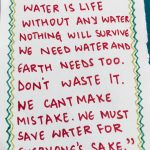 WATER IS LIFE
WITHOUT ANY WATER
NOTHING WILL SURVIVE
WE NEED WATER AND
EARTH NEEDS TOO.
DON'T WASTE IT.
WE CANT MAKE
MISTAKE. WE MUST
SAVE WATER FOR
EVERYONE'S SAKE."